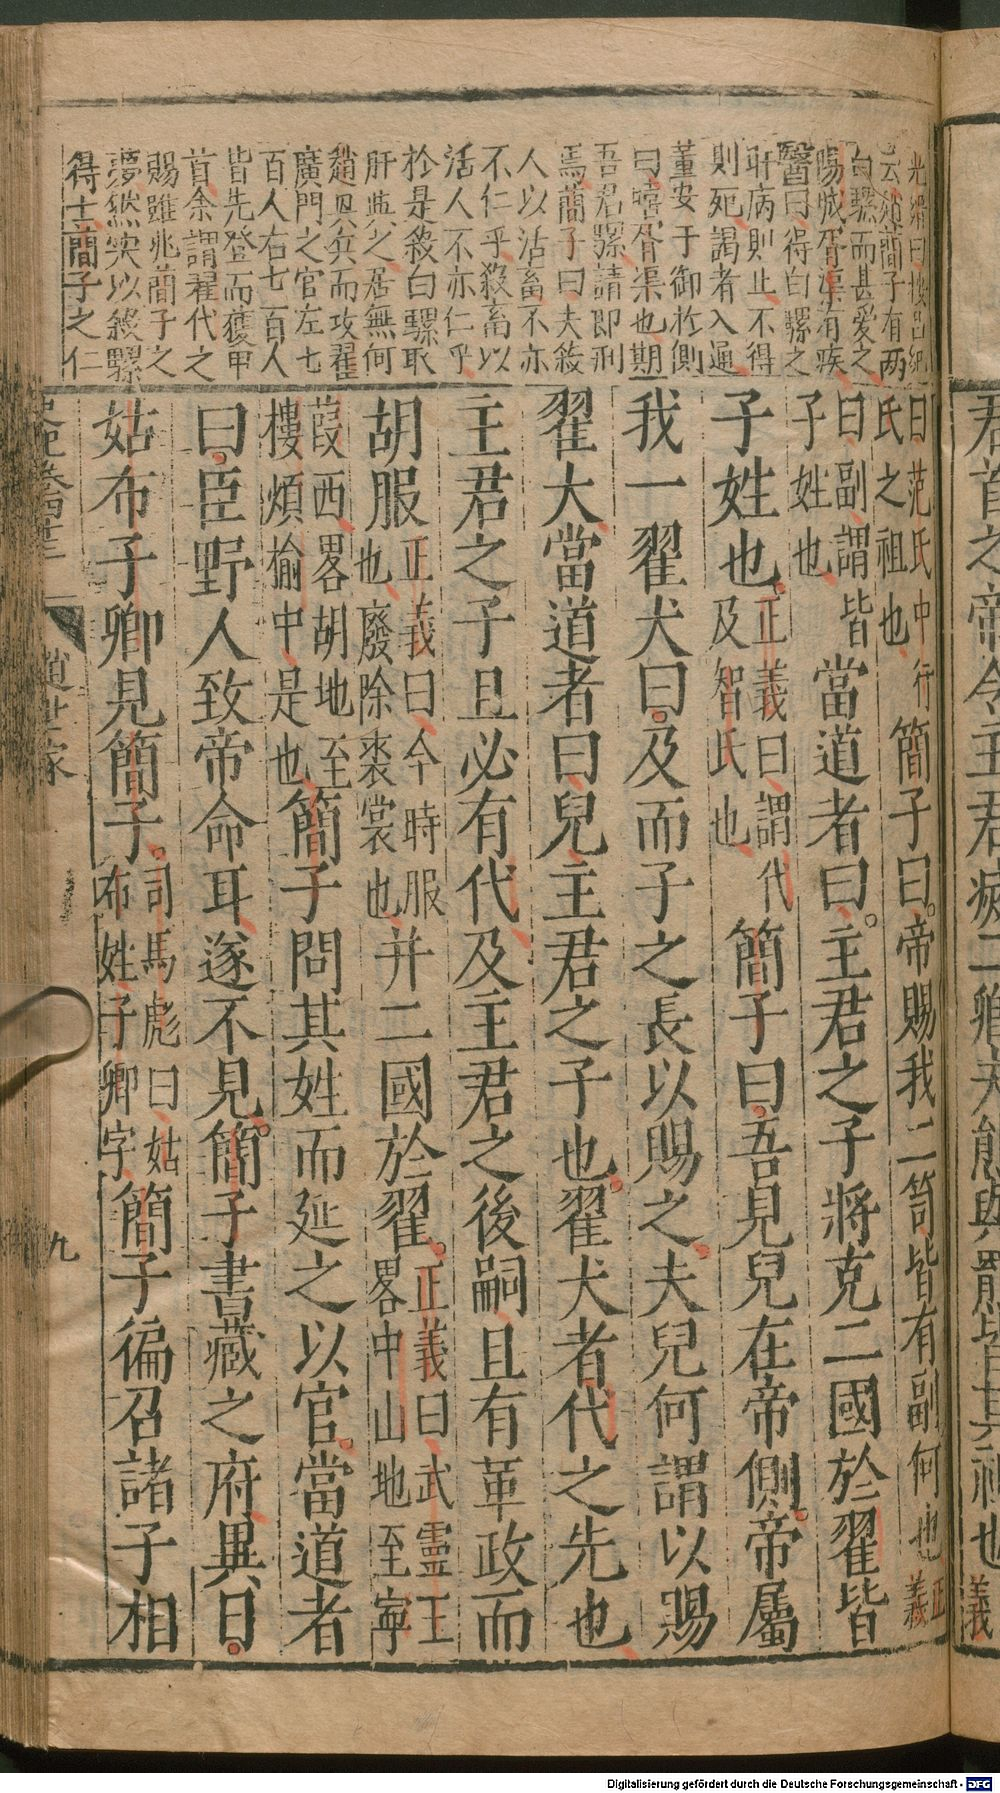 光縉曰按呂紀
云趙簡子有兩
白騾而甚愛之
陽城胥渠有疾
醫曰得白騾之
肝病則止不得
則死謁者入通
董安于御於側
曰嘻胥渠也期
吾君騾請即刑
焉簡子曰夫殺
人以活畜不亦
不仁乎殺畜以
活人不亦仁乎
於是殺白騾取
肝與之居無何
趙興兵而攻翟
廣門之官左七
百人右七百人
皆先登而獲甲
首余謂翟代之
賜雖兆簡子之
夢然實以殺騾
得士簡子之仁
曰范氏中行氏之祖也簡子曰帝賜我二笥皆有副何也正義
曰副謂皆子姓也當道者曰主君之子將克二國於翟皆
子姓也正義曰謂代及智氏也簡子曰吾見兒在帝側帝屬
我一翟犬曰及而子之長以賜之夫兒何謂以賜
翟犬當道者曰兒主君之子也翟犬者代之先也
主君之子且必有代及主君之後嗣且有革政而
胡服正義曰今時服也廢除裘裳也并二國於翟正義曰武靈王畧中山地至寧
葭西畧胡地至樓煩榆中是也簡子問其姓而延之以官當道者
曰臣野人致帝命耳遂不見簡子書藏之府異日
姑布子卿見簡子司馬彪曰姑布姓子卿字簡子徧召諸子相
史記卷四十三
趙世家
九
君首之帝令主君
二卿夫熊與羆皆其祖也
義
Digitalisierung gefördert durch die Deutsche Forschungsgemeinschaft - DFG